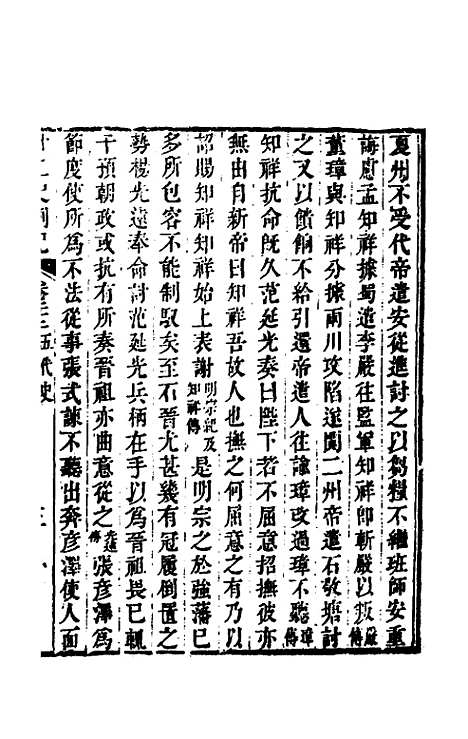 夏州不受代帝遣安從進討之以芻糧不繼班師安重
誨慮孟知祥據蜀遣李嚴往監軍知祥卽斬嚴以叛嚴傳
董璋與知祥分據兩川攻陷遂閬二州帝遣石敬塘討
之又以饋餉不給引還帝遣人往諭璋改過璋不聽璋傳
知祥抗命旣久范延光奏曰陛下若不屈意招撫彼亦
無由自新帝曰知祥吾故人也撫之何屈意之有乃以
詔賜知祥知祥始上表謝明宗紀及知祥傳是明宗之於強藩已
多所包容不能制馭矣至石晉尤甚幾有冠履倒置之
勢楊光遠奉命討范延光兵柄在手以爲晉祖畏已輒
干預朝政或抗有所奏晉祖亦曲意從之光遠傳張彥澤爲
節度使所爲不法從事張式諫不聽出奔彥澤使人面
廿二史劄記 卷二十二 五代史 三